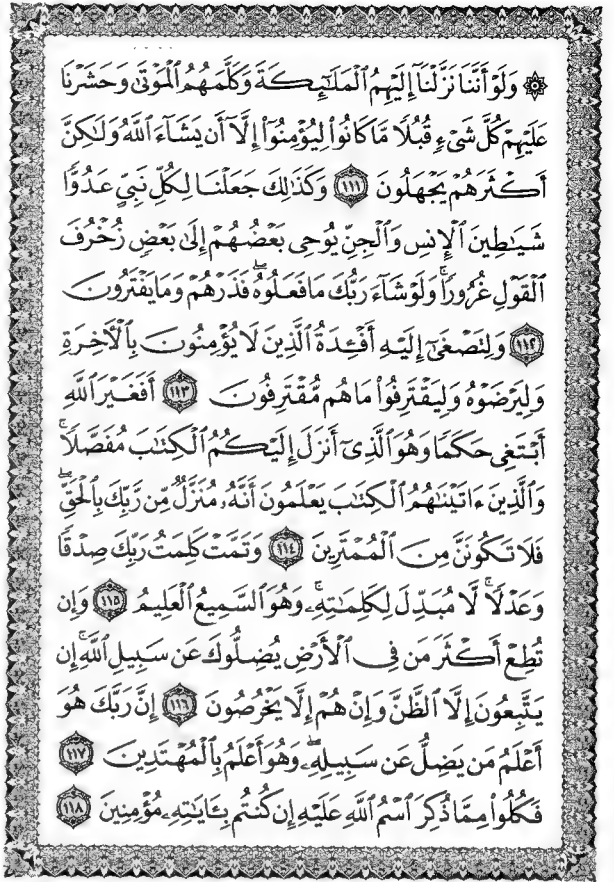 ۞ وَلَوْ أَنَّنَا نَزَّلْنَآ إِلَيْهِمُ ٱلْمَلَٰٓئِكَةَ وَكَلَّمَهُمُ ٱلْمَوْتَىٰ وَحَشَرْنَا
عَلَيْهِمْ كُلَّ شَىْءٍ قُبُلًا مَّا كَانُوا۟ لِيُؤْمِنُوٓا۟ إِلَّآ أَن يَشَآءَ ٱللَّهُ وَلَٰكِنَّ
أَكْثَرَهُمْ يَجْهَلُونَ ١١١ وَكَذَٰلِكَ جَعَلْنَا لِكُلِّ نَبِىٍّ عَدُوًّا
شَيَٰطِينَ ٱلْإِنسِ وَٱلْجِنِّ يُوحِى بَعْضُهُمْ إِلَىٰ بَعْضٍ زُخْرُفَ
ٱلْقَوْلِ غُرُورًا ۚ وَلَوْ شَآءَ رَبُّكَ مَا فَعَلُوهُ ۖ فَذَرْهُمْ وَمَا يَفْتَرُونَ
١١٢ وَلِتَصْغَىٰٓ إِلَيْهِ أَفْـِٔدَةُ ٱلَّذِينَ لَا يُؤْمِنُونَ بِٱلْءَاخِرَةِ
وَلِيَرْضَوْهُ وَلِيَقْتَرِفُوا۟ مَا هُم مُّقْتَرِفُونَ ١١٣ أَفَغَيْرَ ٱللَّهِ
أَبْتَغِى حَكَمًا وَهُوَ ٱلَّذِىٓ أَنزَلَ إِلَيْكُمُ ٱلْكِتَٰبَ مُفَصَّلًا ۚ
وَٱلَّذِينَ ءَاتَيْنَٰهُمُ ٱلْكِتَٰبَ يَعْلَمُونَ أَنَّهُۥ مُنَزَّلٌ مِّن رَّبِّكَ بِٱلْحَقِّ ۖ
فَلَا تَكُونَنَّ مِنَ ٱلْمُمْتَرِينَ ١١٤ وَتَمَّتْ كَلِمَتُ رَبِّكَ صِدْقًا
وَعَدْلًا ۚ لَّا مُبَدِّلَ لِكَلِمَٰتِهِۦ ۚ وَهُوَ ٱلسَّمِيعُ ٱلْعَلِيمُ ١١٥ وَإِن
تُطِعْ أَكْثَرَ مَن فِى ٱلْأَرْضِ يُضِلُّوكَ عَن سَبِيلِ ٱللَّهِ ۚ إِن
يَتَّبِعُونَ إِلَّا ٱلظَّنَّ وَإِنْ هُمْ إِلَّا يَخْرُصُونَ ١١٦ إِنَّ رَبَّكَ هُوَ
أَعْلَمُ مَن يَضِلُّ عَن سَبِيلِهِۦ ۖ وَهُوَ أَعْلَمُ بِٱلْمُهْتَدِينَ ١١٧
فَكُلُوا۟ مِمَّا ذُكِرَ ٱسْمُ ٱللَّهِ عَلَيْهِ إِن كُنتُم بِـَٔايَٰتِهِۦ مُؤْمِنِينَ ١١٨